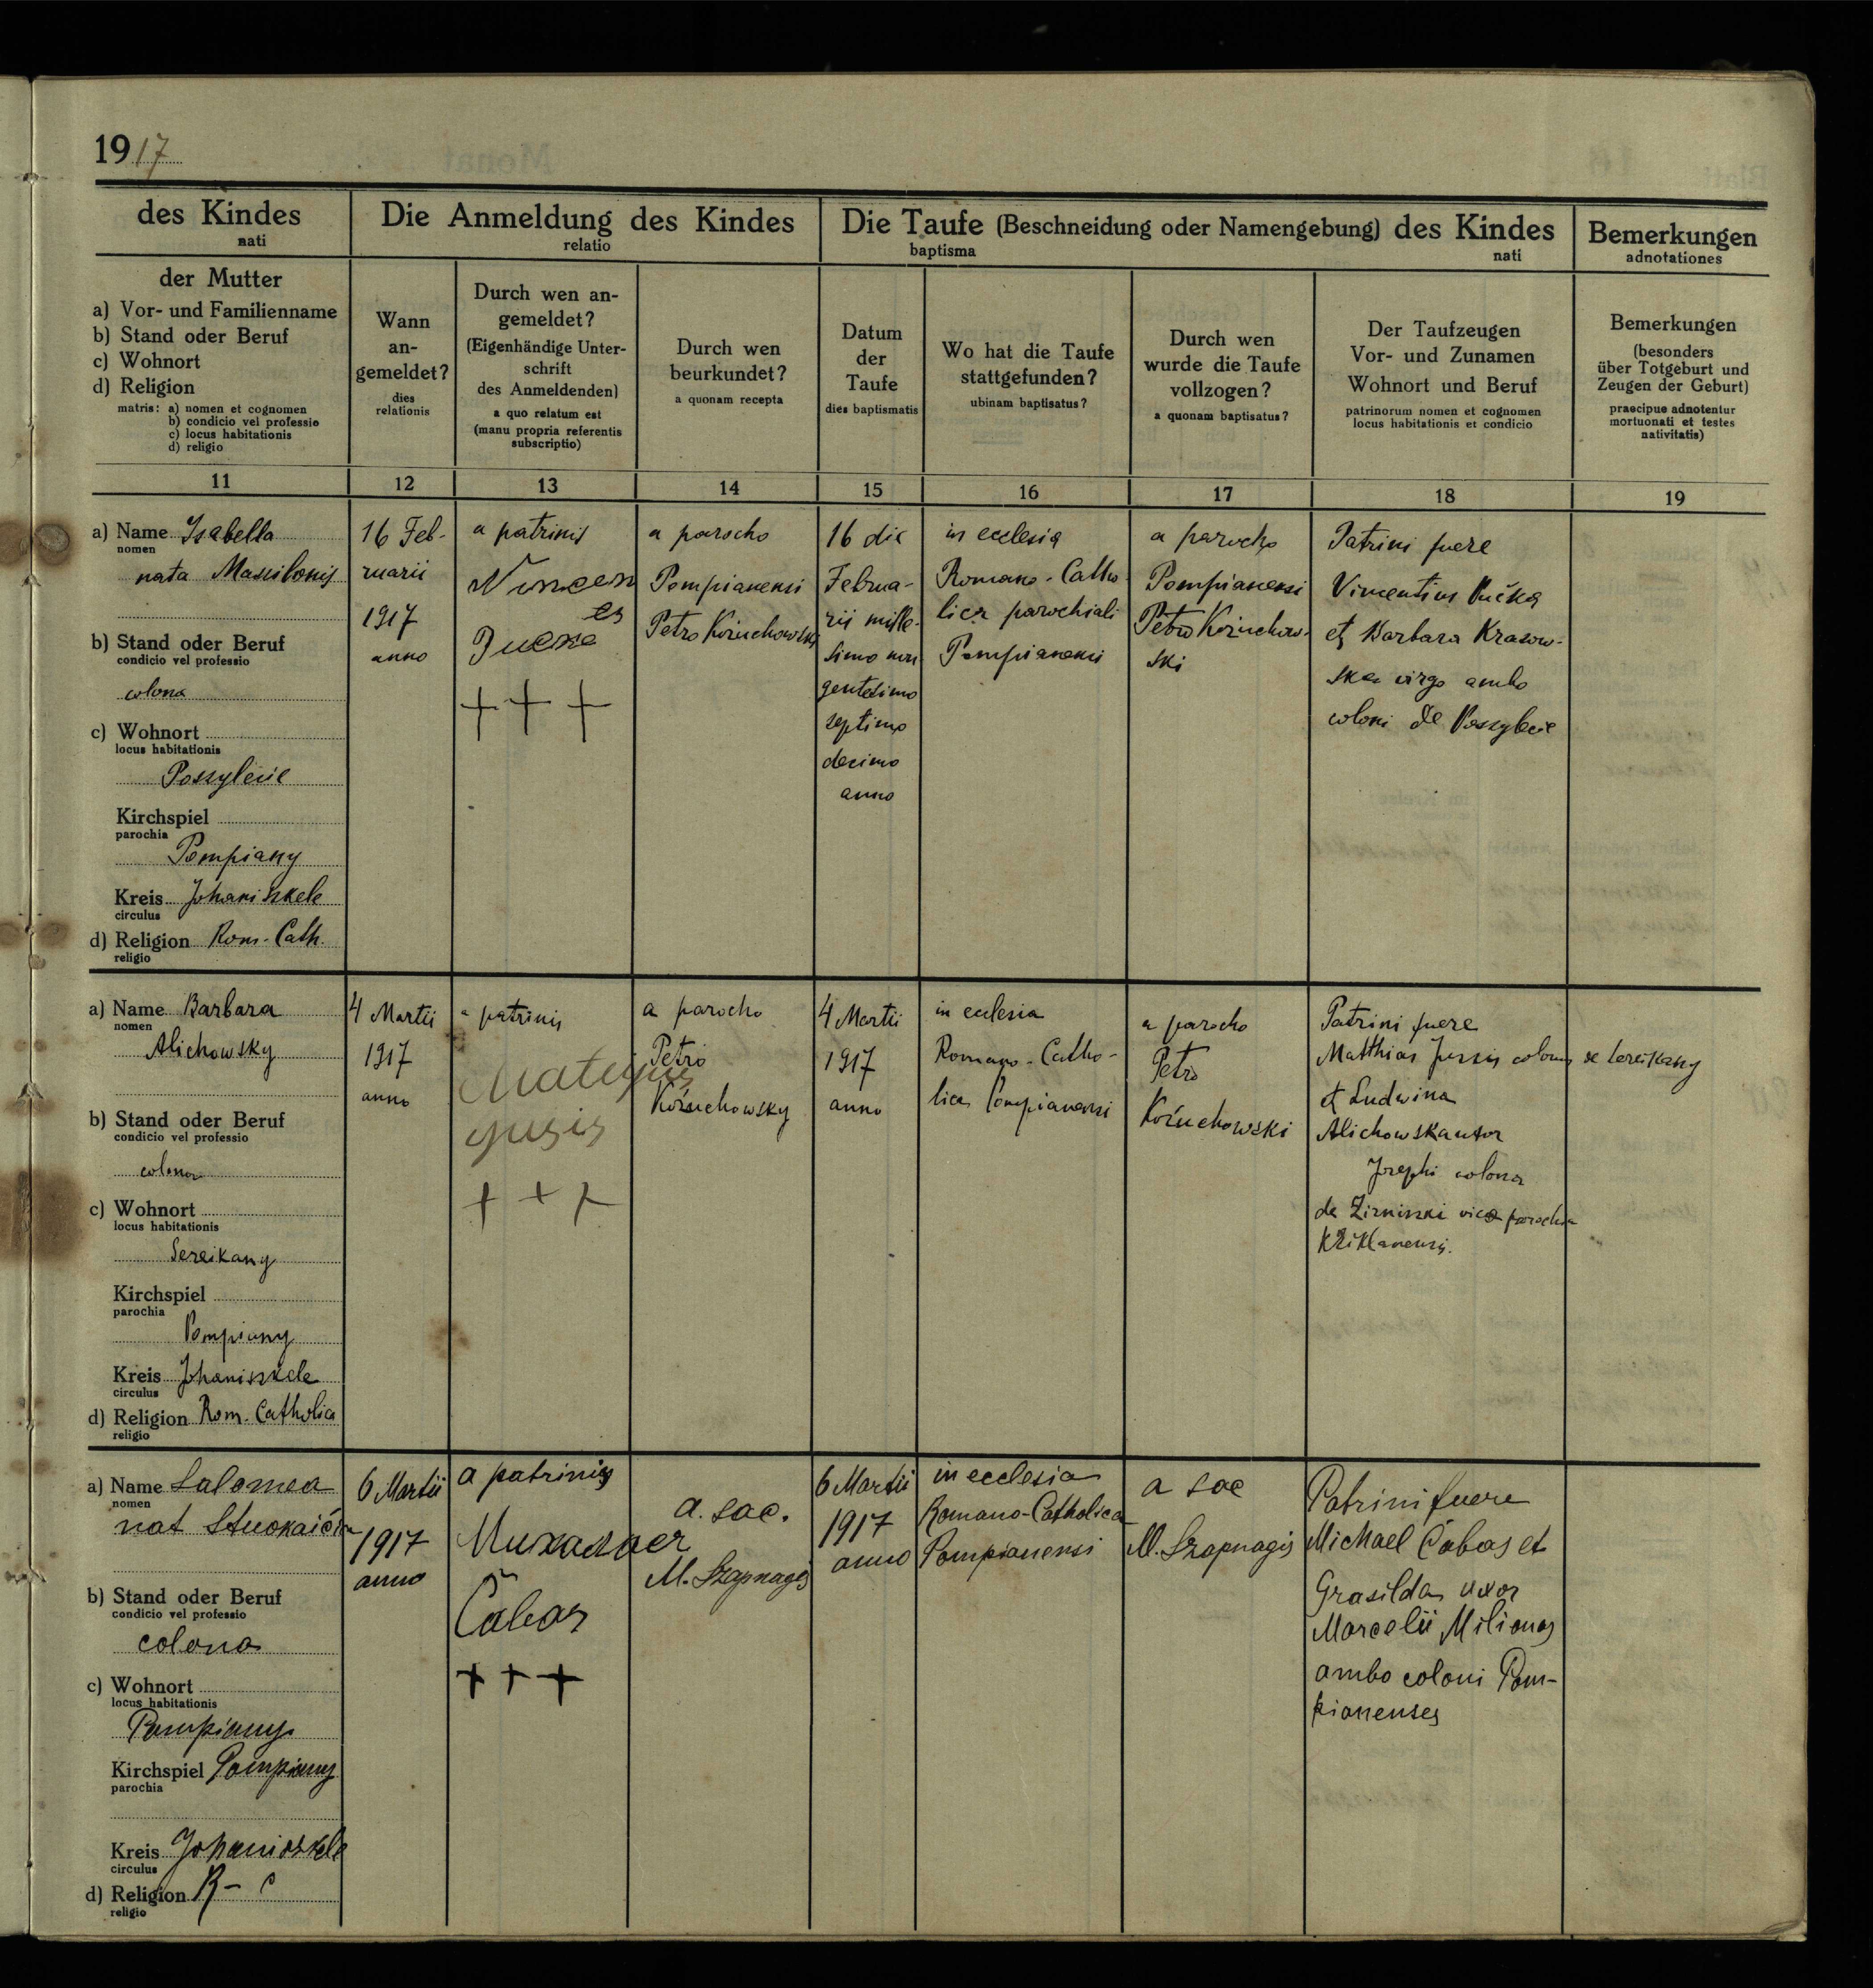 1917
des Kindes
nati
Die Anmeldung des Kindes
relatio
Die Taufe (Beschneidung oder Namengebung) des Kindes
baptisma
nati
Bemerkungen
adnotationes
der Mutter
a) Vor- und Familienname
b) Stand oder Beruf
c) Wohnort
d) Religion
matris: a) nomen et cognomen
b) condicio vel professio
c) locus habitationis
d) religio
Wann
an-
gemeldet?
dies
relationis
Durch wen an-
gemeldet?
(Eigenhändige Unter-
schrift
des Anmeldenden)
a quo relatum est
(manu propria referentis
subscriptio)
Durch wen
beurkundet?
a quonam recepta
Datum
der
Taufe
dies baptismatis
Wo hat die Taufe
stattgefunden?
ubinam baptisatus?
Durch wen
wurde die Taufe
vollzogen?
a quonam baptisatus?
Der Taufzeugen
Vor- und Zunamen
Wohnort und Beruf
patrinorum nomen et cognomen
locus habitationis et condicio
Bemerkungen
(besonders
über Totgeburt und
Zeugen der Geburt)
praecipue adnotentur
mortuonati et testes
nativitatis)
11
12
13
14
15
16
17
18
19
a) Name Isabella
nomen
nata Massilonis
b) Stand oder Beruf
condicio vel professio
colona
c) Wohnort
locus habitationis
Poszylecie
Kirchspiel
parochia
Pompiany
Kreis Johaniszkele
circulus
d) Religion Rom-Cath.
religio
16 Feb-
ruarii
1917
anno
a patrinis
+++
a parocho
Pompianensi
Petro Kożuchowski
16 die
Februa-
rii mille-
simo non
gentesimo
septimo
decimo
anno
in ecclesia
Romano-Catho-
lica parochiali
Pompianensi
a parocho
Pompianensi
Petro Kożuchow-
ski
Patrini fuere
Vincentius Pučka
et Barbara Krasow-
ska virgo ambo
coloni de Poszylecie
a) Name Barbara
nomen
Alichowsky
b) Stand oder Beruf
condicio vel professio
colona
c) Wohnort
locus habitationis
Sereikany
Kirchspiel
parochia
Pompiany
Kreis Johaniszkele
circulus
d) Religion Rom. Catholica
religio
4 Martii
1917
anno
a patrinis
+++
a parocho
Petro
Kożuchowsky
4 Martii
1917
anno
in ecclesia
Romano-Catho-
lica Pompianensi
a parocho
Petro
Kożuchowski
Patrini fuere
Matthias Jussis colonus de Sereikany
et Ludwina
Alichowska uxor
Josephi colona
de Zirniszki
a) Name Salomea
nomen
nat
b) Stand oder Beruf
condicio vel professio
colona
c) Wohnort
locus habitationis
Pompiany
Kirchspiel Pompiany
parochia
Kreis Johaniszkele
circulus
d) Religion R-C
religio
6 Martii
1917
anno
a patrinis
Čabas
+++
a. sac.
M. Szapnagis
6 Martii
1917
anno
in ecclesia
Romano-Catholica
Pompianensi
a sac
M. Szapnagis
Patrini fuere
Michael Čabas et
Grasilda uxor
Marcelii Milionas
ambo coloni Pom-
pianenses